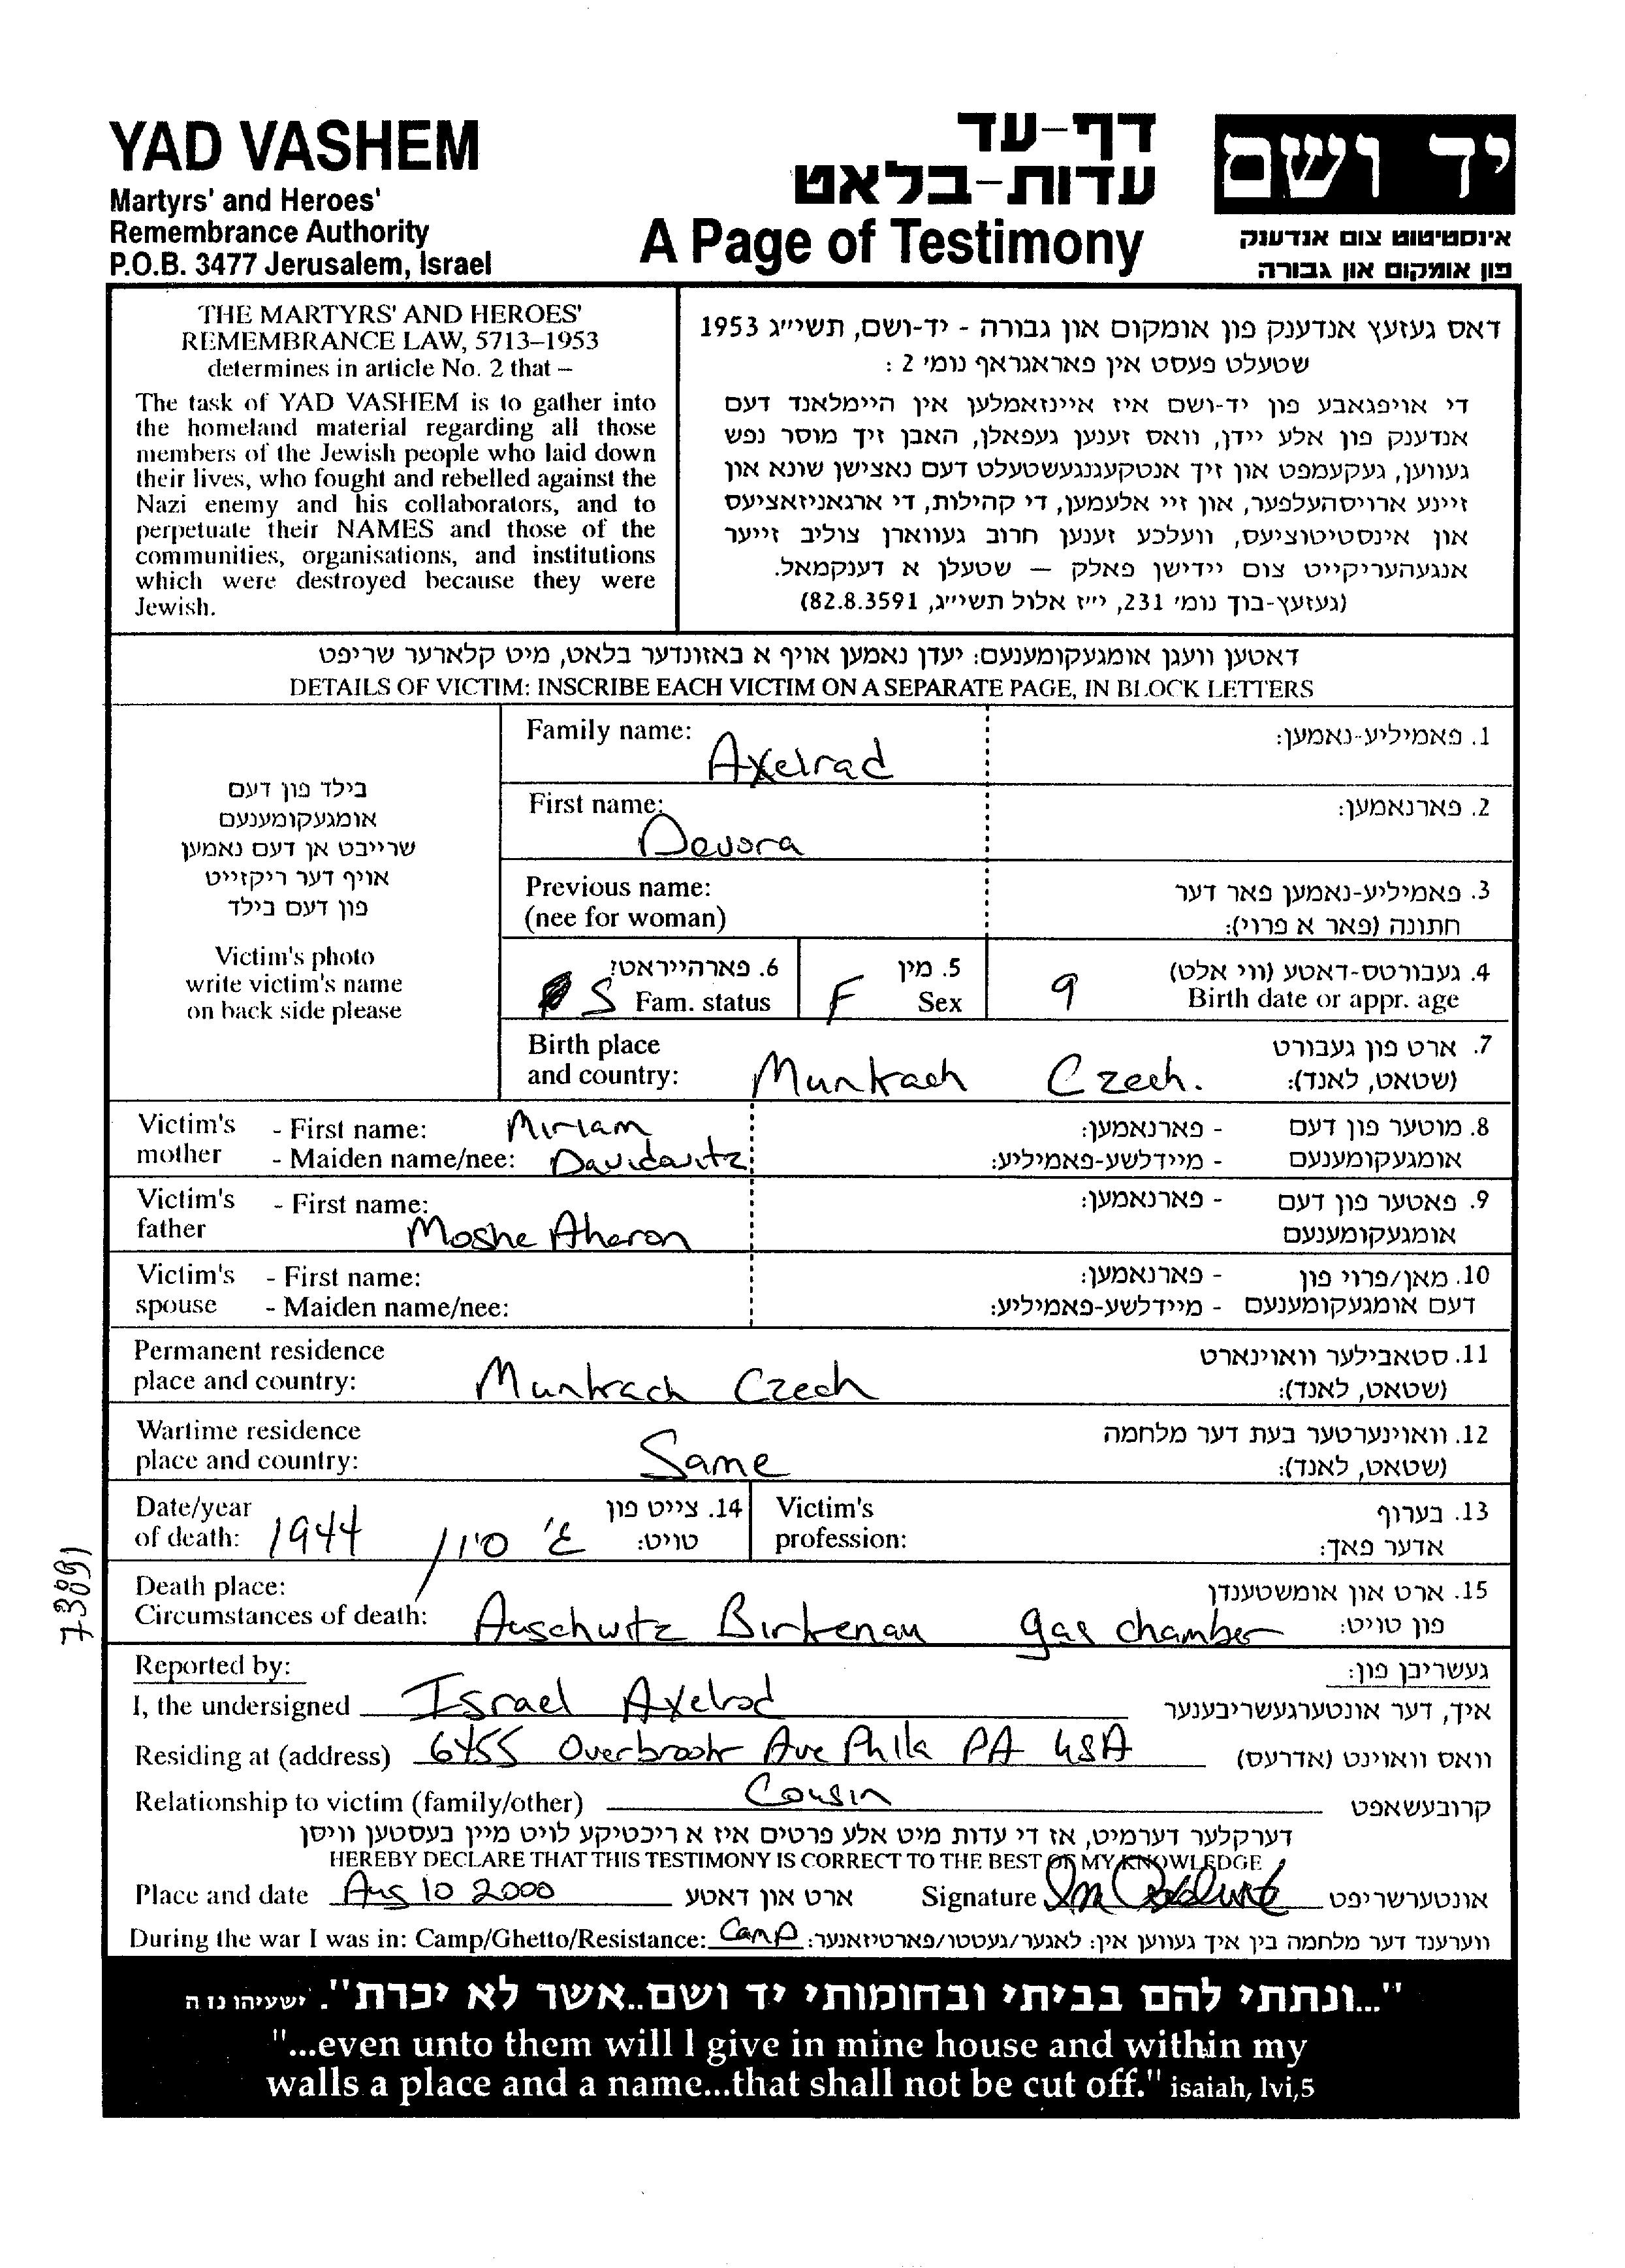 YAD VASHEM
Martyrs' and Heroes'
Remembrance Authority
P.O.B. 3477 Jerusalem, Israel
דף-עד
עדות-בלאט
A Page of Testimony
יד ושם
אינסטיטוט צום אנדענק
פון אומקום און גבורה
THE MARTYRS' AND HEROES'
REMEMBRANCE LAW, 5713–1953
determines in article No. 2 that –
The task of YAD VASHEM is to gather into
the homeland material regarding all those
members of the Jewish people who laid down
their lives, who fought and rebelled against the
Nazi enemy and his collaborators, and to
perpetuate their NAMES and those of the
communities, organisations, and institutions
which were destroyed because they were
Jewish.
דאס געזעץ אנדענק פון אומקום און גבורה - יד-ושם, תשי״ג 1953
שטעלט פעסט אין פאראגראף נומ׳ 2 :
די אויפגאבע פון יד-ושם איז איינזאמלען אין היימלאנד דעם
אנדענק פון אלע יידן, וואס זענען געפאלן, האבן זיך מוסר נפש
געווען, געקעמפט און זיך אנטקעגנגעשטעלט דעם נאצישן שונא און
זיינע ארויסהעלפער, און זיי אלעמען, די קהילות, די ארגאניזאציעס
און אינסטיטוציעס, וועלכע זענען חרוב געווארן צוליב זייער
אנגעהעריקייט צום יידישן פאלק – שטעלן א דענקמאל.
(געזעץ-בוך נומ׳ 231, י״ז אלול תשי״ג, 82.8.3591)
דאטען וועגן אומגעקומענעם: יעדן נאמען אויף א באזונדער בלאט, מיט קלארער שריפט
DETAILS OF VICTIM: INSCRIBE EACH VICTIM ON A SEPARATE PAGE, IN BLOCK LETTERS
בילד פון דעם
אומגעקומענעם
שרייבט אן דעם נאמען
אויף דער ריקזייט
פון דעם בילד
Victim's photo
write victim's name
on back side please
Family name: Axelrad 1. פאמיליע-נאמען:
First name: Devora 2. פארנאמען:
Previous name: 3. פאמיליע-נאמען פאר דער
(nee for woman) חתונה (פאר א פרוי):
6. פארהייראט? 5. מין 4. געבורטס-דאטע (ווי אלט)
S Fam. status F Sex 9 Birth date or appr. age
Birth place 7. ארט פון געבורט
and country: Munkach Czech. (שטאט, לאנד):
Victim's - First name: Miriam - פארנאמען: 8. מוטער פון דעם
mother - Maiden name/nee: Davidowitz - מיידלשע-פאמיליע: אומגעקומענעם
Victim's - First name: - פארנאמען: 9. פאטער פון דעם
father Moshe Aharon אומגעקומענעם
Victim's - First name: - פארנאמען: 10. מאן/פרוי פון
spouse - Maiden name/nee: - מיידלשע-פאמיליע: דעם אומגעקומענעם
Permanent residence 11. סטאבילער וואוינארט
place and country: Munkach Czech (שטאט, לאנד):
Wartime residence 12. וואוינערטער בעת דער מלחמה
place and country: Same (שטאט, לאנד):
Date/year 14. צייט פון Victim's 13. בערוף
of death: 1944 / ג׳ סיון טויט: profession: אדער פאך:
Death place: 15. ארט און אומשטענדן
Circumstances of death: Auschwitz Birkenau gas chamber פון טויט:
Reported by: געשריבן פון:
I, the undersigned Israel Axelrod איך, דער אונטערגעשריבענער
Residing at (address) 6455 Overbrook Ave Phila PA USA וואס וואוינט (אדרעס)
Relationship to victim (family/other) Cousin קרובעשאפט
דערקלער דערמיט, אז די עדות מיט אלע פרטים איז א ריכטיקע לויט מיין בעסטען וויסן
HEREBY DECLARE THAT THIS TESTIMONY IS CORRECT TO THE BEST OF MY KNOWLEDGE
Place and date Aug 10 2000 ארט און דאטע Signature אונטערשריפט
During the war I was in: Camp/Ghetto/Resistance: Camp ווערענד דער מלחמה בין איך געווען אין: לאגער/געטטו/פארטיזאנער:
"...ונתתי להם בביתי ובחומותי יד ושם..אשר לא יכרת". ישעיהו נז ה
"...even unto them will I give in mine house and within my
walls a place and a name...that shall not be cut off." isaiah, lvi,5
73891